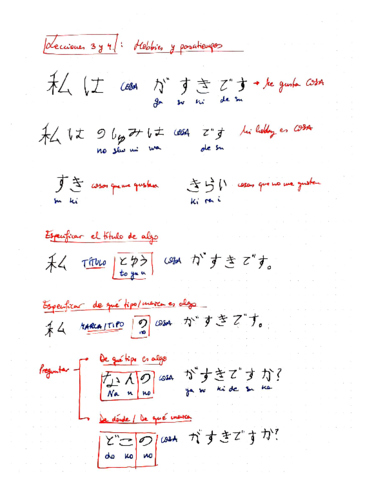 Lecciones 3 y 4: Hobbies y pasatiempos
私は COSA がすきです → Me gusta COSA
ga su ki de su
私は のしゅみは COSA です Mi hobby es COSA
no shu mi wa de su
すき cosas que me gustan きらい cosas que no me gustan
su ki ki ra i
Especificar el título de algo
私 TÍTULO とゆう COSA がすきです。
to yu u
Especificar de qué tipo/marca es algo
私 MARCA/TIPO の COSA がすきです。
no
De qué tipo es algo
Preguntar なんの COSA がすきですか?
Na n no ga su ki de su ka
De dónde / De qué marca
どこの COSA がすきですか?
do ko no